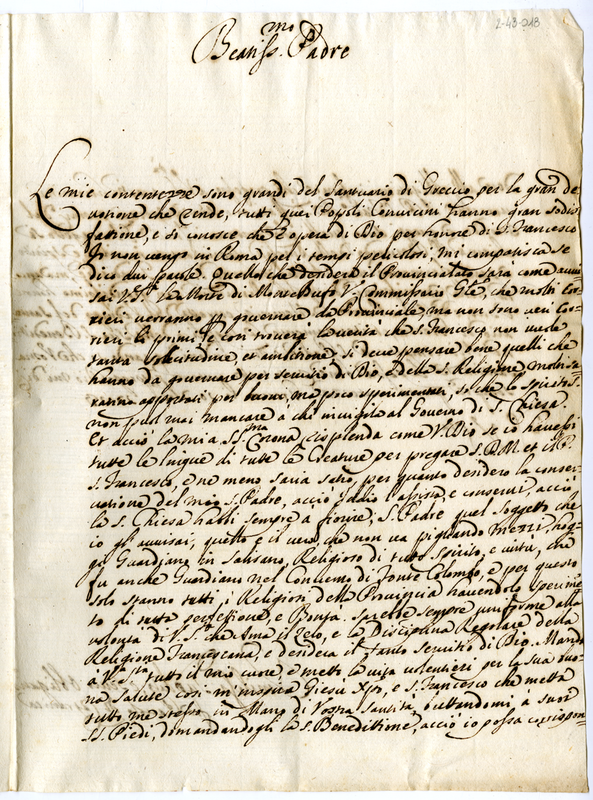 2-43-218
Beatiss.mo Padre
Le mie contentezze sono grandi del Santuario di Greccio per la gran de
votione che rende, tutti quei Popoli Convicini hanno gran sodis
fatione, e si conosce che è opera di Dio per honore di S. Francesco
Io non vengo in Roma per i tempi pericolosi, mi compatisca se
dico due parole. Quello che desidera il Provincialato sarà come avvi
sai V. S.tà la Morte di Monte Bufo V. Commissario G.le, che molti Cor
rieri verranno per governare da Provinciale, ma non sono veri Cor=
rieri li primi, e così troverà la verità che S. Francesco non vuole
tanta solecitudine, et ambitione, si deve pensare bene quelli che
hanno da governare per servitio di Dio, e della S. Religione, molti sa
ranno approvati per buoni, ma poco sperimentati, so che lo Spirito S.
non puol mai mancare à chi invigila al Governo di S. Chiesa
Et acciò la mia SS.ma Corona risplenda come V. Dio se io havessi
tutte le lingue di tutte le Creature per pregare S. D. M. et il P.
S. Francesco, e ne meno saria satio per quanto desidero la conser
vatione del mio S. Padre, acciò Iddio l'assista, e conservi, acciò
la S. Chiesa habbi sempre à fiorire; S. Padre quel soggetto che
io gli avvisai, quello è il vero, che non va pigliando mezzi, hog=
gi Guardiano in Salisano, Religioso di tutto Spirito, e virtù, che
fu anche Guardiano nel Convento di Fonte Colombo, e per questo
solo stanno tutti i Religiosi della Provincia havendolo sperimē
to di tutta perfettione, e Bontà. Sarebbe sempre uniforme alla
volontà di V. S. che Ama il Zelo, e la Disciplina Regolare della
Religione Francescana, e desidera il Santo Servitio di Dio. Mando
à V. S.tà tutto il mio cuore, e metto la vita volentieri per la sua buo
na salute così m'inspira Giesù Xpo, e S. Francesco che metta
tutto me stesso in Mano di Vostra Santità, buttandomi, à suoi
SS. Piedi, domandandogli la S. Benedittione, acciò io possa corrispon=